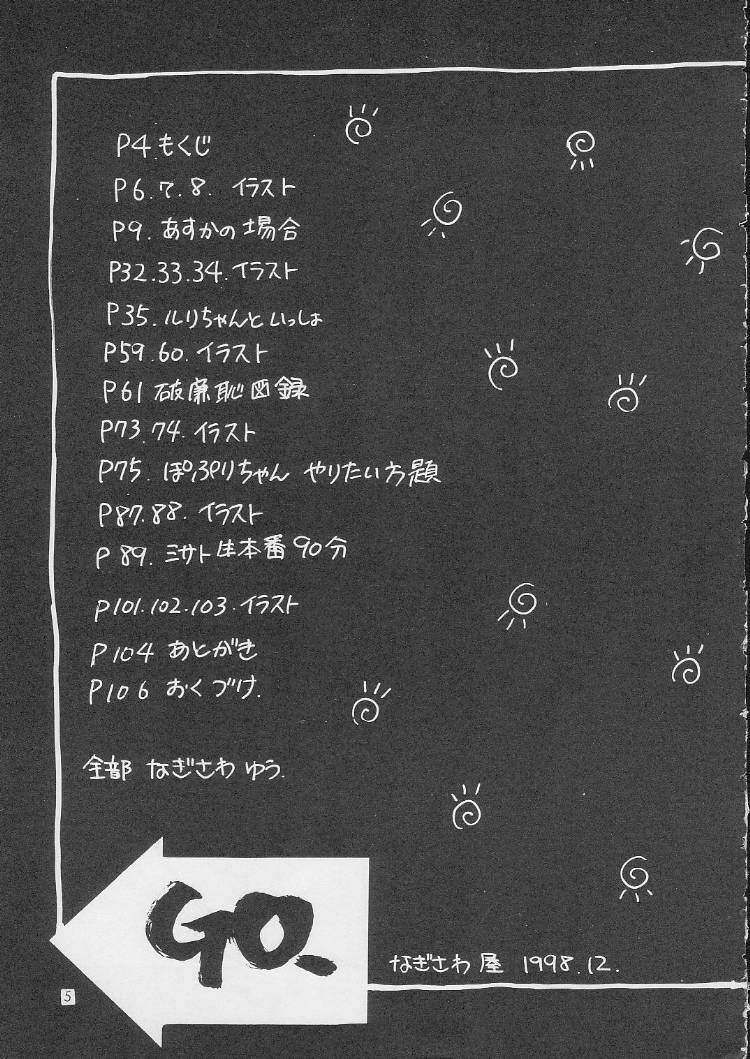 P4.もくじ
P6.7.8. イラスト
P9. あすかの場合
P32.33.34.イラスト
P35.ルリちゃんといっしょ
P59.60.イラスト
P61 破廉恥図録
P73.74.イラスト
P75. ぽぷりちゃん やりたい方題
P87.88.イラスト
P89. ミサト生本番90分
P101.102.103.イラスト
P104 あとがき
P106 おくづけ.
全部 なぎさわ ゆう.
GO.
なぎさわ屋 1998.12.
5